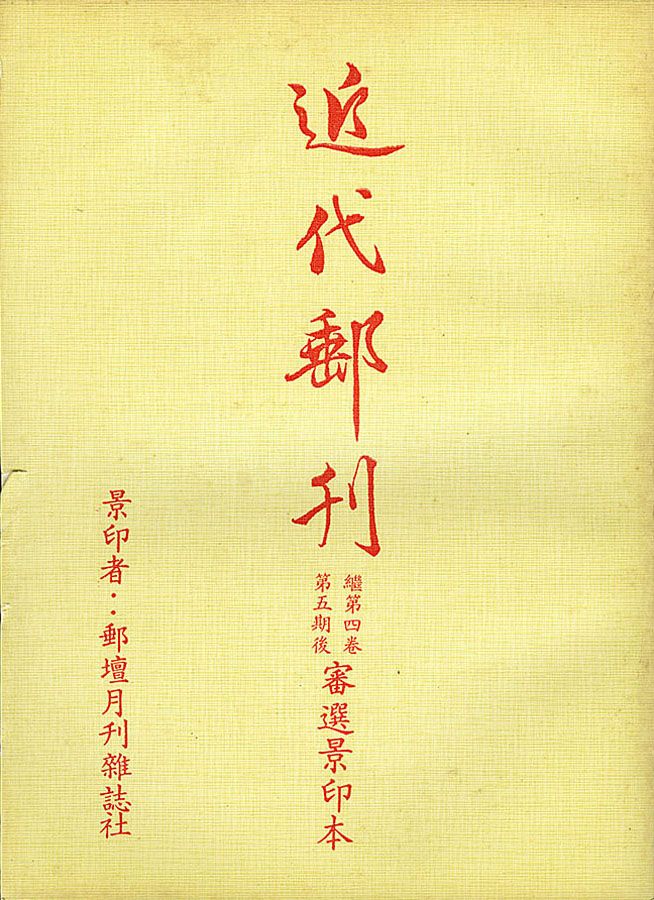 近代郵刊
繼第四卷
第五期後
審選景印本
景印者：郵壇月刊雜誌社